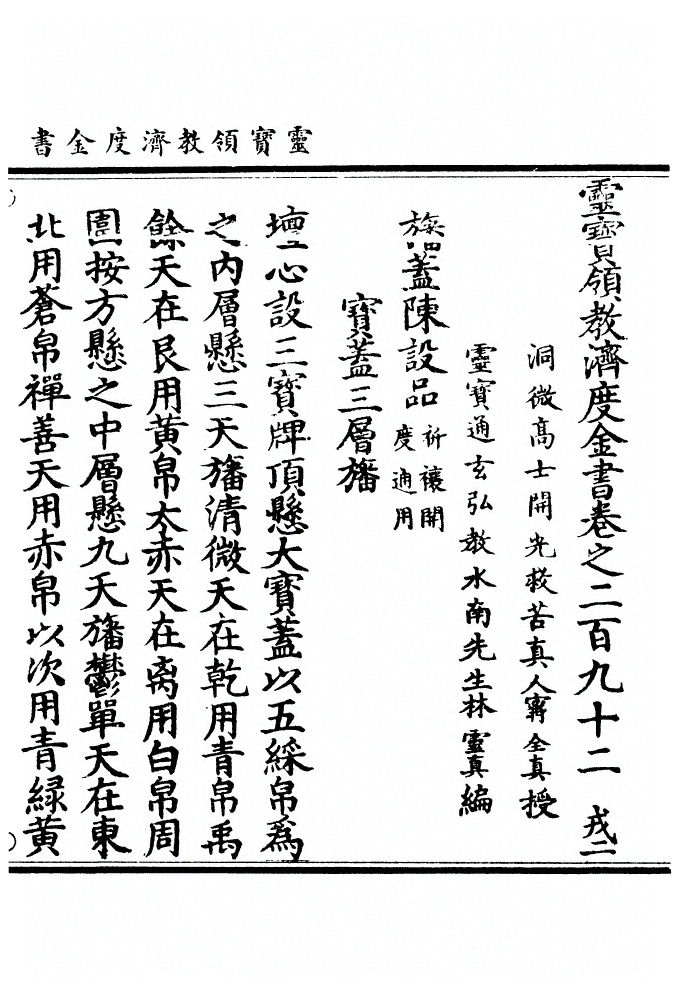 靈寶領教濟度金書
靈寶領教濟度金書卷之二百九十二 戎二
洞微高士開光救苦真人寗全真授
靈寶通玄弘教水南先生林靈真編
旛蓋陳設品 祈禳開度通用
寶蓋三層旛
壇心設三寶牌頂懸大寶蓋以五綵帛爲
之内層懸三天旛清微天在乾用青帛禹
餘天在艮用黄帛太赤天在离用白帛周
圍按方懸之中層懸九天旛鬱單天在東
北用蒼帛禪善天用赤帛以次用青緑黄